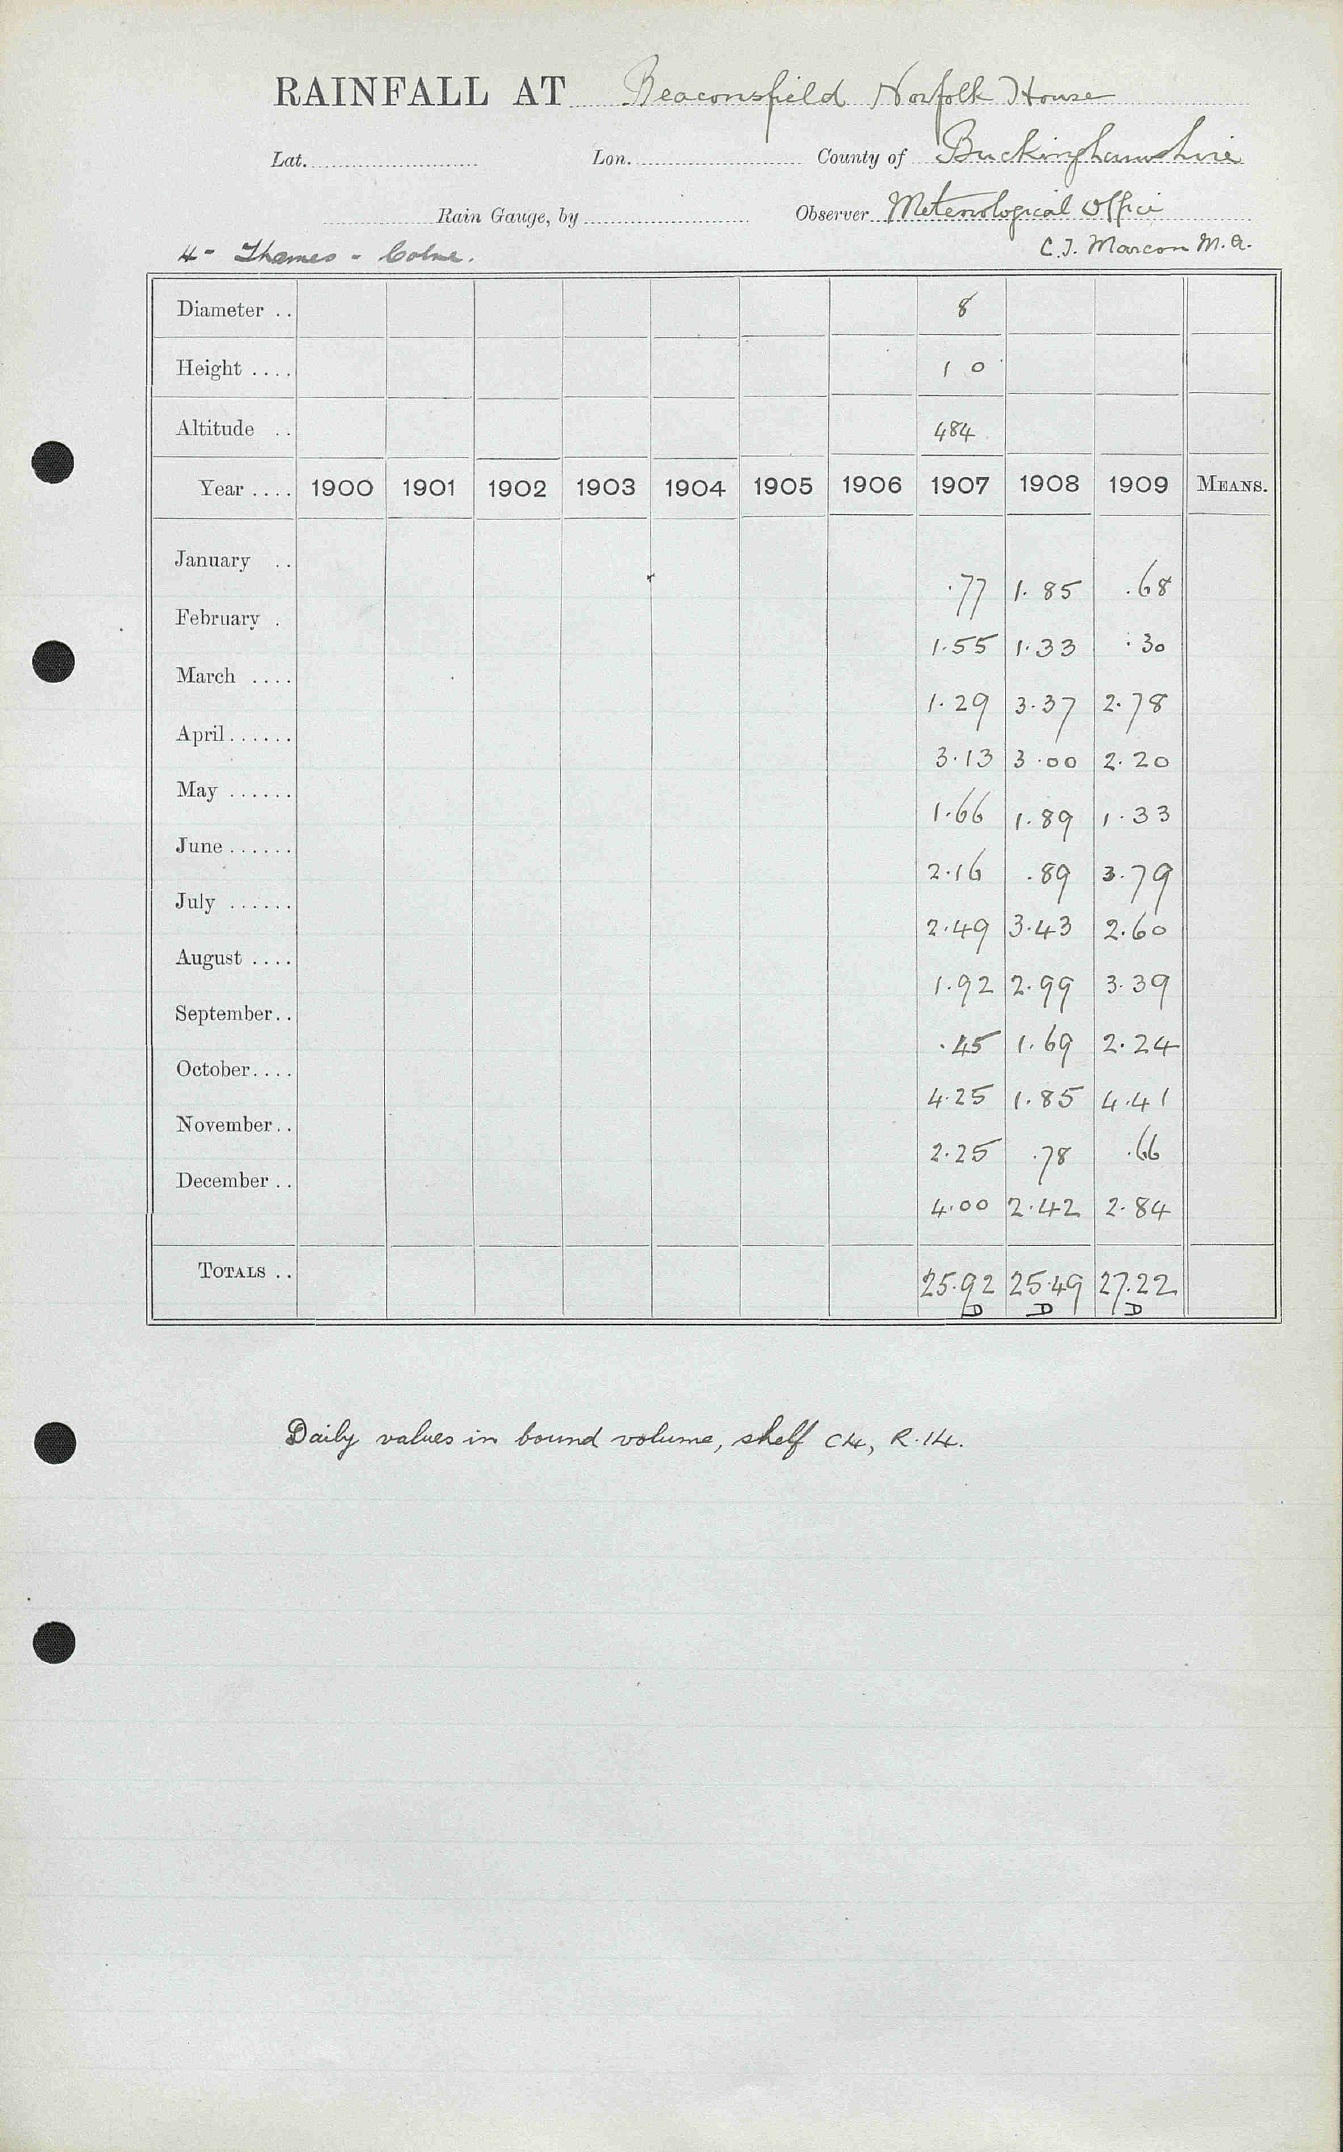 RAINFALL AT Beaconsfield Norfolk House
Lat. Lon. County of Buckinghamshire
Rain Gauge, by Observer Meteorological Office
4- Thames - Colne. C.J. Marcon M.A.
Diameter .. 8
Height .... 1 0
Altitude .. 484
Year .... 1900 1901 1902 1903 1904 1905 1906 1907 1908 1909 MEANS.
January .. .77 1.85 .68
February . 1.55 1.33 .30
March .... 1.29 3.37 2.78
April...... 3.13 3.00 2.20
May ...... 1.66 1.89 1.33
June ...... 2.16 .89 3.79
July ...... 2.49 3.43 2.60
August .... 1.92 2.99 3.39
September.. .45 1.69 2.24
October.... 4.25 1.85 4.41
November.. 2.25 .78 .66
December .. 4.00 2.42 2.84
TOTALS .. 25.92 25.49 27.22
D D D
Daily values in bound volume, shelf C4, R.14.